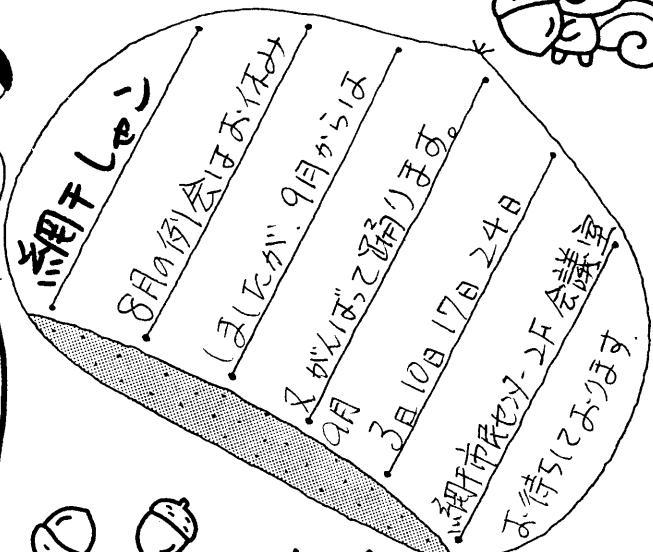 網干しゃン
8月の例会はお休み
しましたが、9月からは
又がんばって踊ります。
9月
3日 10日 17日 24日
網干市民センター2F 会議室
お待ちしております